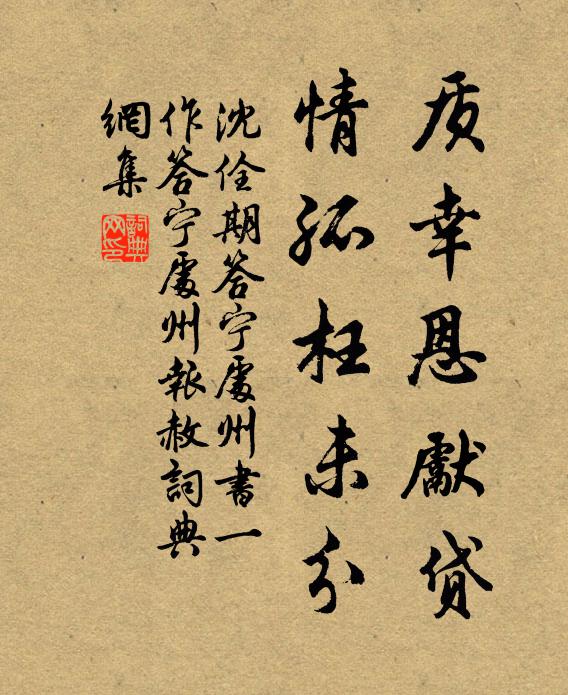 质幸恩獻貸
情孤枉未分
沈佺期答宁處州書一
作答宁處州報赦詞典
網集
詞典
网印